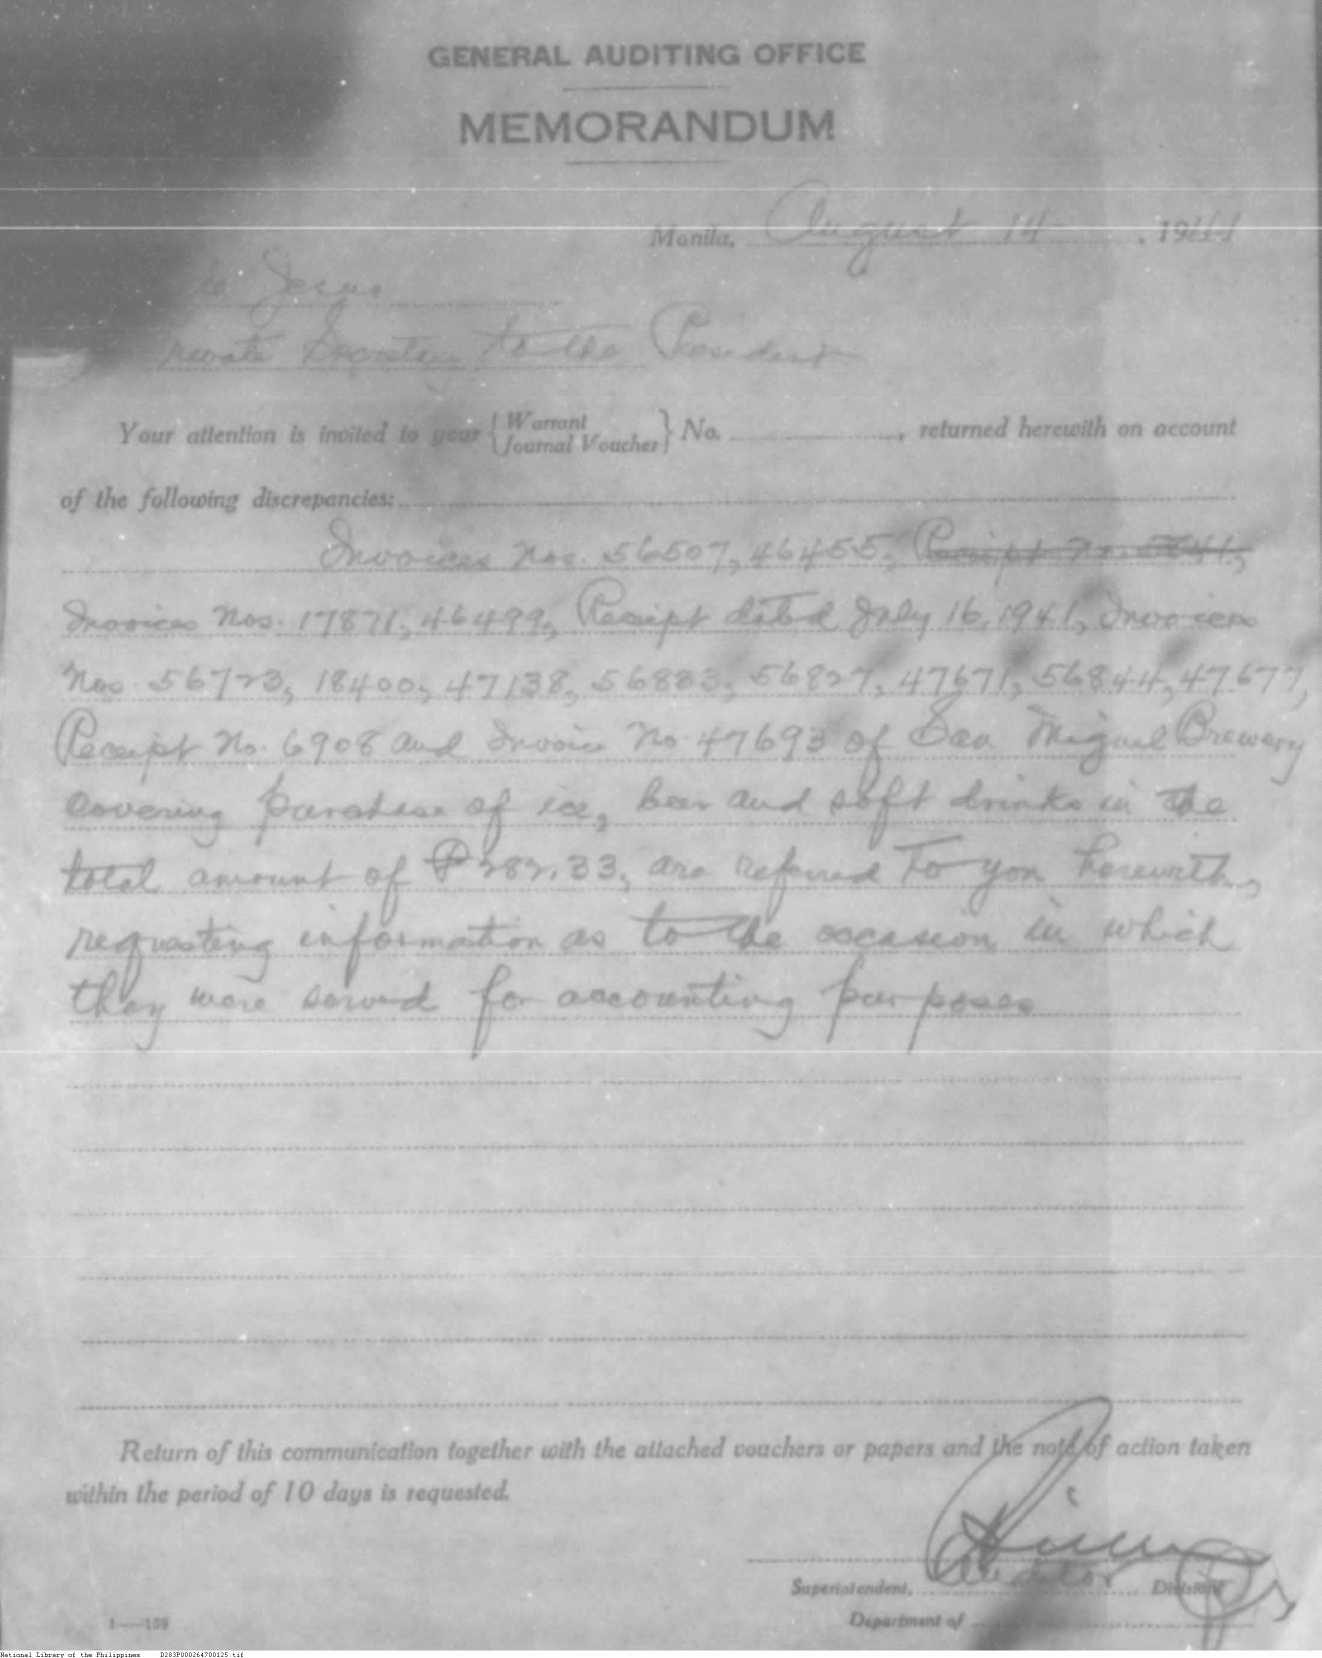 GENERAL AUDITING OFFICE
MEMORANDUM
Manila, August 14, 1941
de Jesus
Private Secretary to the President
Your attention is invited to your {Warrant Journal Voucher} No. , returned herewith on account
of the following discrepancies:
Invoices Nos. 56507, 46455, Receipt No. 5841,
Invoices Nos. 17871, 46499, Receipt dated July 16, 1941, Invoices
Nos. 56723, 18400, 47138, 56883, 56827, 47671, 56844, 47677,
Receipt No. 6908 and Invoice No. 47693 of San Miguel Brewery
covering purchase of ice, beer and soft drinks in the
total amount of ₱282.33, are referred to you herewith,
requesting information as to the occasion in which
they were served for accounting purposes
Return of this communication together with the attached vouchers or papers and the note of action taken
within the period of 10 days is requested.
Auditor
Superintendent, Division
Department of
1—159
National Library of the Philippines D283P000264700125.tif